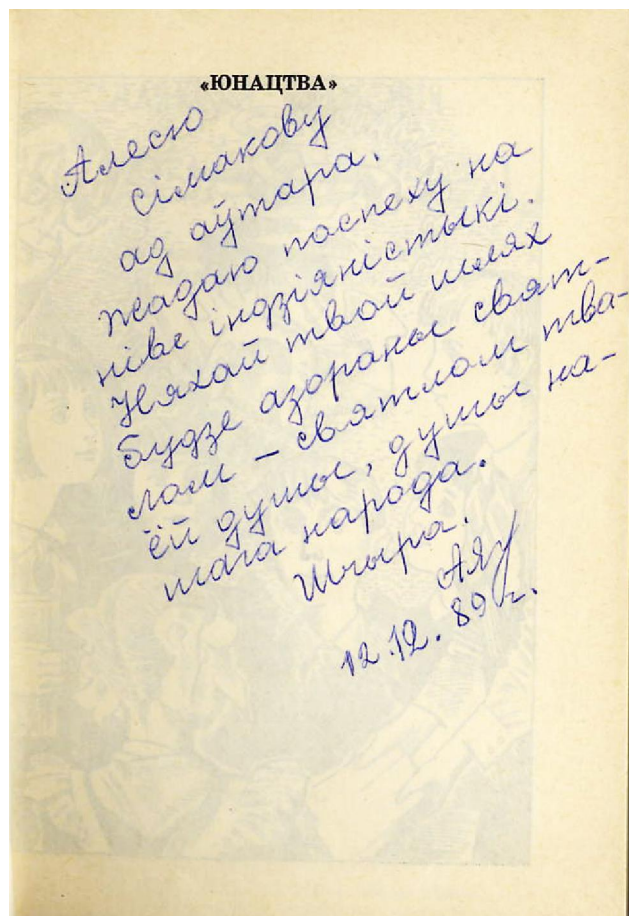 «ЮНАЦТВА»
Алесю
Сімакову
ад аўтара.
Жадаю поспеху на
ніве індзіяністыкі.
Няхай твой шлях
будзе азораны свят-
лом – святлом тва-
ёй душы, душы на-
шага народа.
Шчыра.
12.12.89 г.